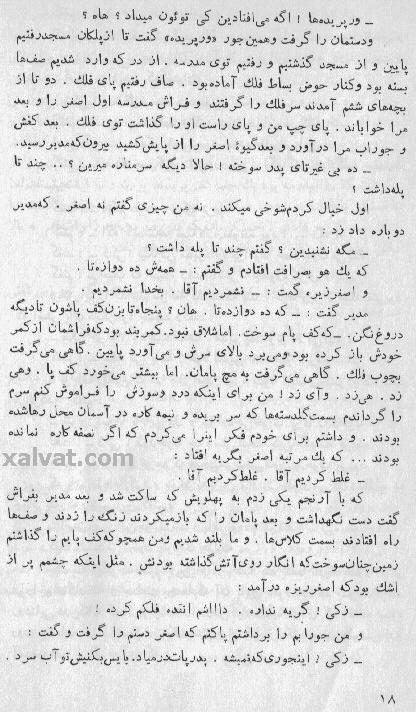 ــ ورپریده‌ها ! اگه می‌افتادین کی توئون میداد ؟ هاه ؟
ودستمان را گرفت وهمین‌جور «ورپریده» گفت تا ازپلکان مسجدرفتیم
پایین و از مسجد گذشتیم و رفتیم توی مدرسه . از در که وارد شدیم صف‌ها
بسته بود وکنار حوض بساط فلك آماده‌بود . صاف رفتیم پای فلك . دو تا از
بچه‌های ششم آمدند سرفلك را گرفتند و فراش مدرسه اول اصغر را و بعد
مرا خواباند . پای چپ من و پای راست او را گذاشت توی فلك . بعد کفش
و جوراب مرا درآورد و بعدگیوهٔ اصغر را از پایش‌کشید بیرون‌که‌مدیررسید.
ــ ده بی غیرتای پدر سوخته ! حالا دیگه سرمناره میرین ؟ .. چند تا
پله‌داشت ؟
اول خیال کردم‌شوخی میکند . نه من چیزی گفتم نه اصغر . که‌مدیر
دوباره داد زد :
ــ مگه نشنیدین ؟ گفتم چند تا پله داشت ؟
که یك هو بصرافت افتادم و گفتم : ــ همه‌ش ده دوازه‌تا .
و اصغرزیزه گفت : ــ نشمردیم آقا . بخدا نشمردیم .
مدیر گفت : ــ که ده دوازده‌تا . هان ؟ پنجاه‌تابزن‌کف پاشون تادیگه
دروغ‌نگن. ــ که‌کف پام سوخت. اماشلاق نبود.کمربند بودکه‌فراشمان ازکمر
خودش باز کرده بود.ومی‌برد بالای سرش و می‌آورد پایین . گاهی می‌گرفت
بچوب فلك . گاهی می‌گرفت به مچ پامان. اما بیشتر می‌خورد کف پا . وهی
زد . هی‌زد . وآی زد ! من برای اینکه درد وسوزش را فراموش کنم سرم
را گرداندم بسمت‌گلدسته‌ها که سر بریده و نیمه کاره در آسمان محل رهاشده
بودند . و داشتم برای خودم فکر اینرا می‌کردم که اگر نصفه کاره نمانده
بودند ... که یك مرتبه اصغر بگریه افتاد :
xalvat.com
ــ غلط کردیم آقا . غلط‌کردیم آقا .
که با آرنجم یکی زدم به پهلویش که ساکت شد و بعد مدیر بفراش
گفت دست نگهداشت و بعد پامان را که بازمیکردند زنگ را زدند و صف‌ها
راه افتادند بسمت کلاس‌ها . و ما بلند شدیم ومن همچوکه‌کف پایم را گذاشتم
زمین‌چنان‌سوخت‌که انگار روی‌آتش‌گذاشته بودنش . مثل اینکه چشمم پر از
اشك بودکه اصغرریزه درآمد :
ــ زکی ! گریه نداره . دااشم اننده فلکم کرده !
و من جورابم را برداشتم پاکنم که اصغر دستم را گرفت و گفت :
ــ زکی ! اینجوری‌که‌نمیشه . پدرپات‌درمیاد. بایس‌بکنیش‌توآب سرد .
۱۸